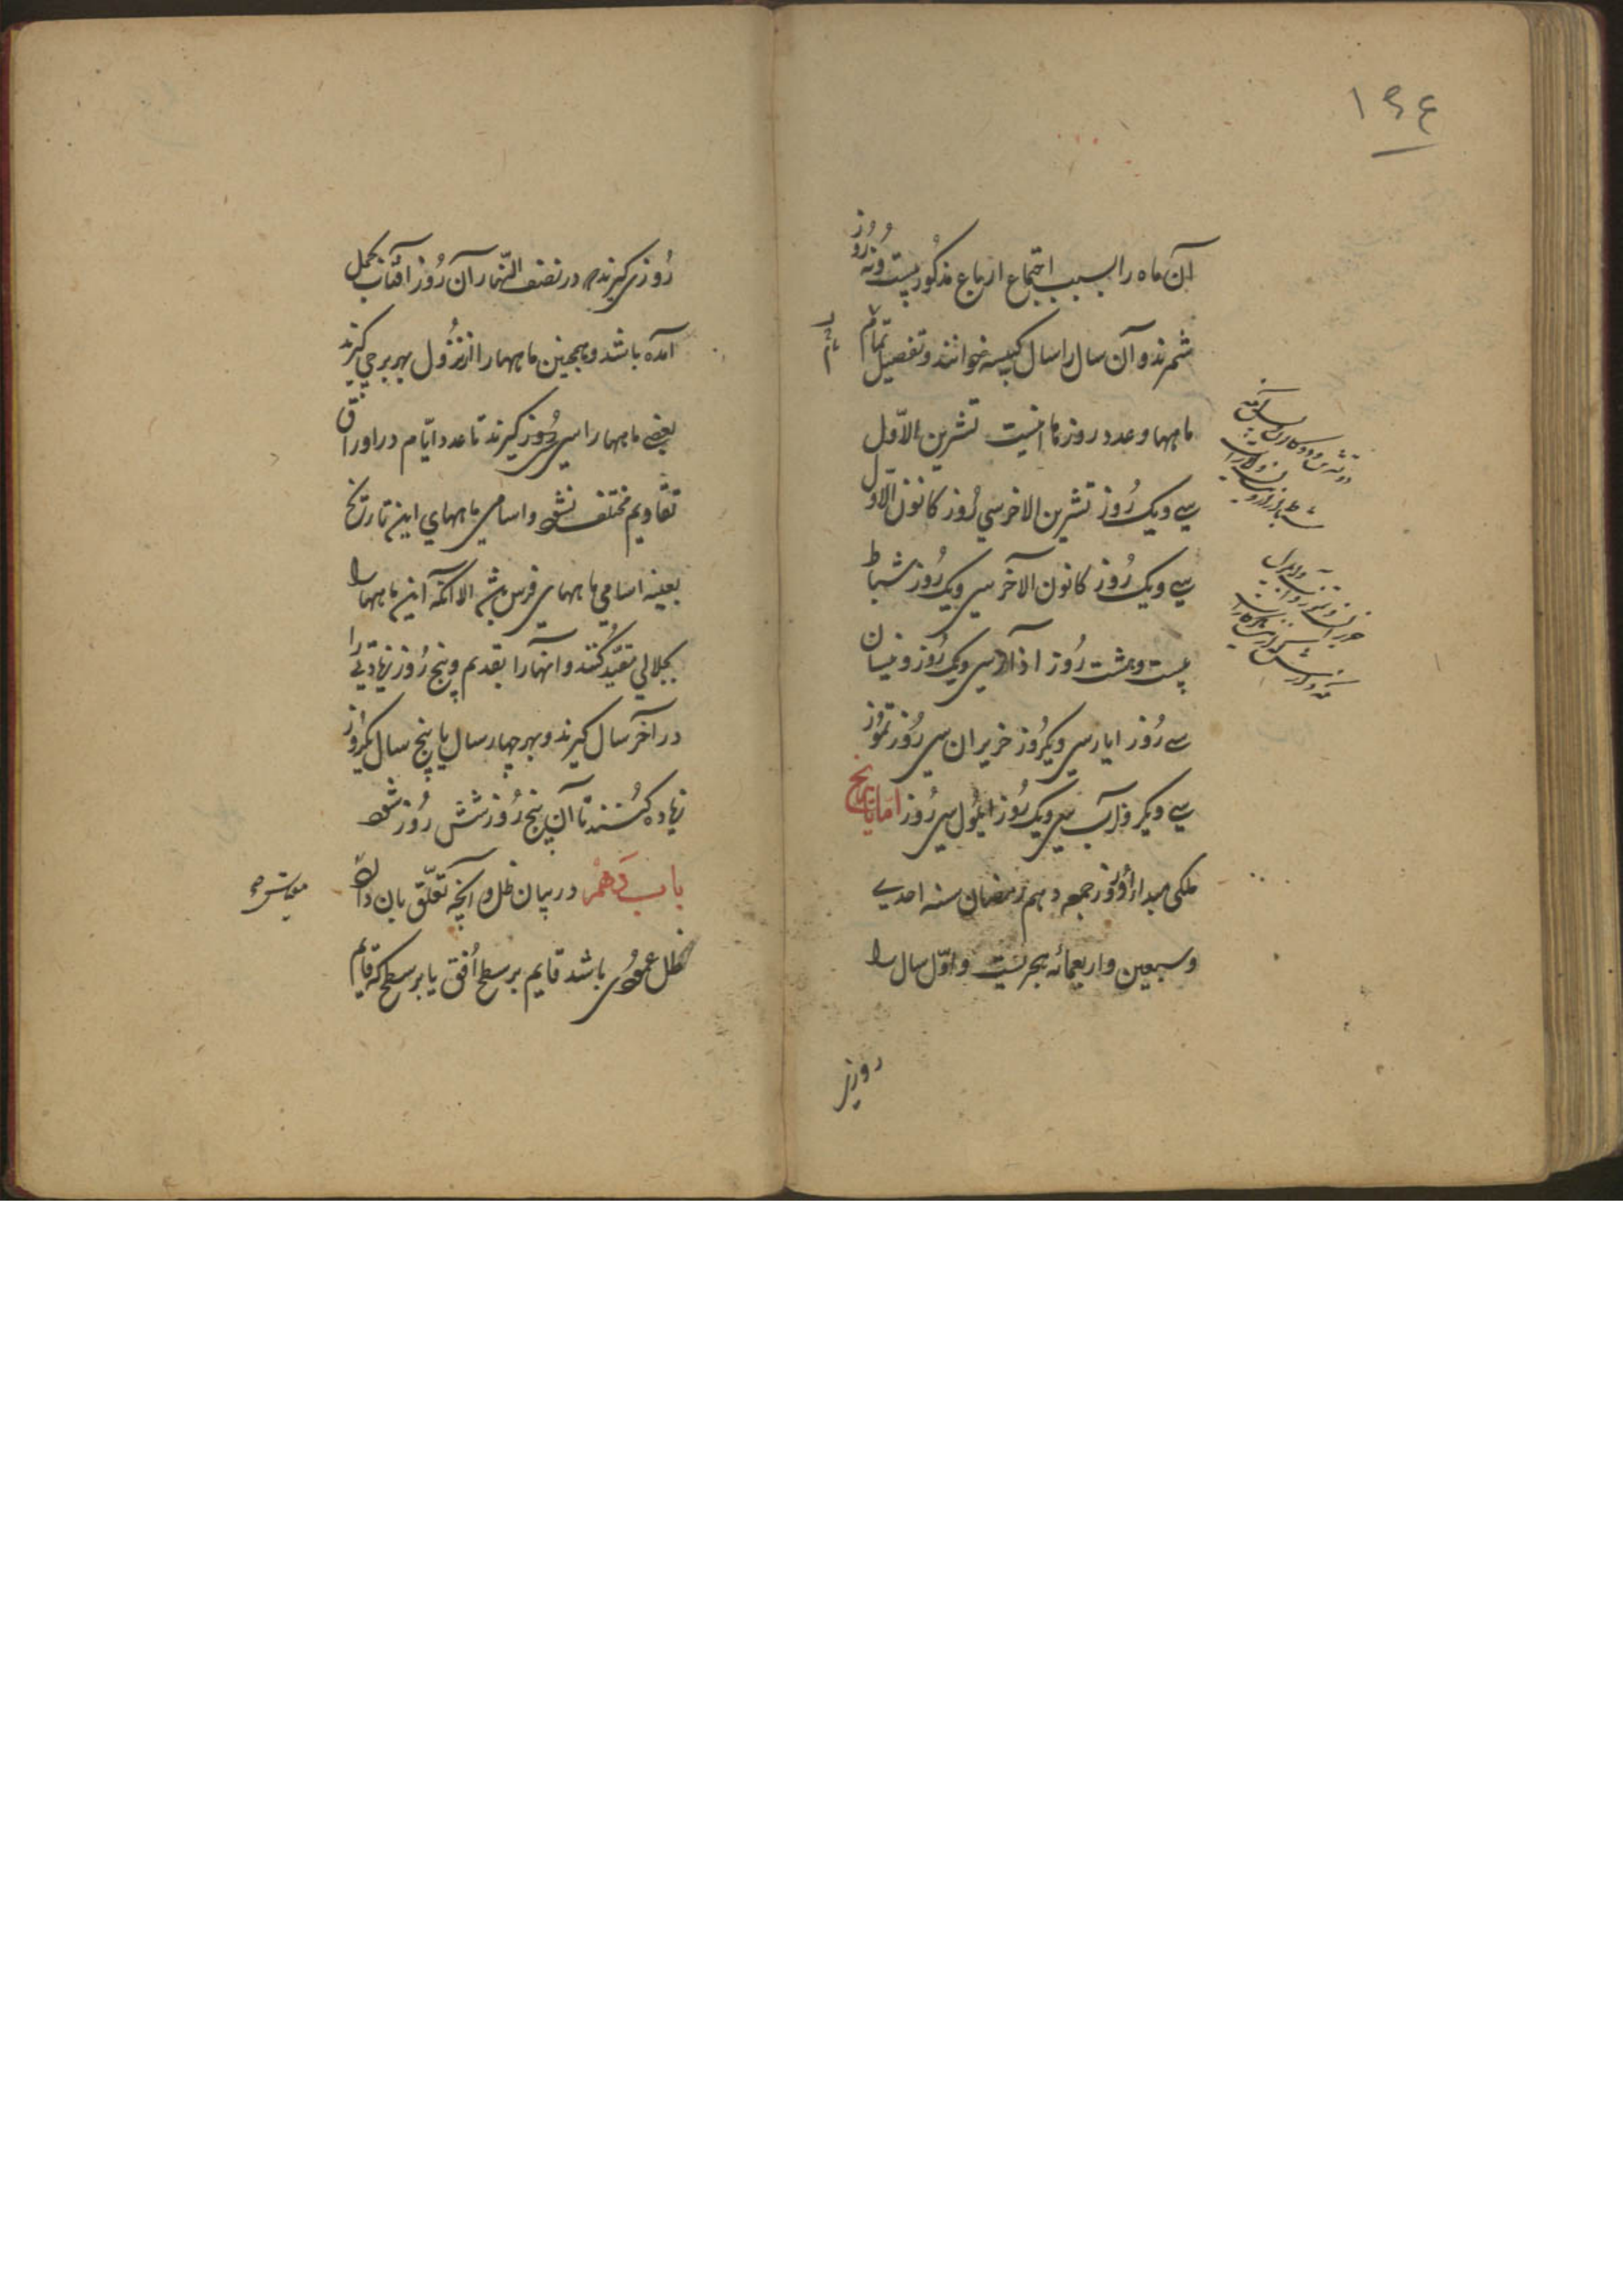 ۱۶۴
آن ماه را بسبب اجتماع ارباع مذکور بیست و نه روز
شمرند و آن سال را سال کبیسه خوانند و تفصیل تمام
ماهها و عدد روزها اینست تشرین الاوّل
سی و یک رُوز تشرین الاخر سی رُوز کانون الاوّل
سی و یک رُوز کانون الآخر سی و یک رُوز شباط
بیست و هشت رُوز اذار سی و یک رُوز و نیسان
سی رُوز ایار سی و یکرُوز حزیران سی رُوز تموز
سی و یکروز آب سی و یک رُوز ایلول سی رُوز امّا تاریخ
ملکی مبدا او روز جمعه دهم رمضان سنه احدی
و سبعین و اربعمائه هجریست و اوّل سال را
روزی
رُوزی گیرند که در نصف النّهار آن رُوز آفتاب بحمل
آمده باشد و همچنین ماهها را از نزُول بهر برجی گیرند
بعضی ماهها را سی رُوز گیرند تا عدد ایّام در اوراق
تقاویم مختلف نشود و اسامی ماههای این تاریخ
بعینه اسامی ماههای فرس باشد الا آنکه این ماهها را
بجلالی مقیّد کنند و آنها را بقدیم و پنج رُوز زیادتی را
در آخر سال گیرند و بهر چهار سال یا پنج سال یکروز
زیاده کُنند تا آن پنج رُوز شش رُوز شود
باب دَهم در بیان ظل و آنچه تعلّق بان دارد
ظل عمودی باشد قایم بر سطح اُفق یا بر سطحی که قایم